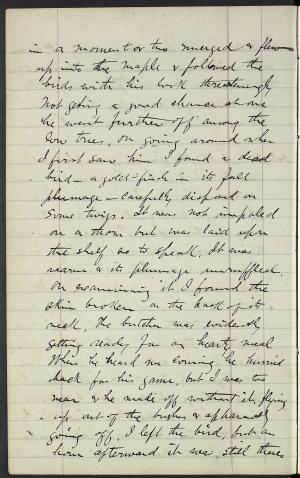 in a moment or two emerged & flew
up into the maple & followed the
birds with his look threateningly
Not getting a good chance at one
he went further off among the
low trees, on going around when
I first saw him I found a dead
bird - a gold-finch in its full
plumage - carefully disposed on
some twigs. It was not impaled
on a thorn but was laid upon
the shelf so to speak. It was
warm & its plumage unruffled.
On examining it I found the
skin broken on the back of its
neck. The butcher was evidently
getting ready for a hearty meal
When he heard me coming he hurried
back for his game, but I was too
near & he made off without it, flying
up out of the bushes & apparently
going off. I left the bird, but an
hour afterward it was still there